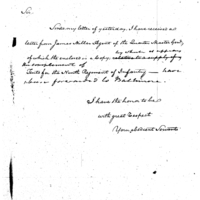 Sir,
Since my letter of yesterday I have received a
letter from James Miller Agent of the Quarter Master Genl,
by which it appears
of which the enclosed is a copy,
Tents for the Ninth Regiment of Infantry — have
been forwarded to Baltimore.
I have the honor to be
with great respect
Your obedient Servant